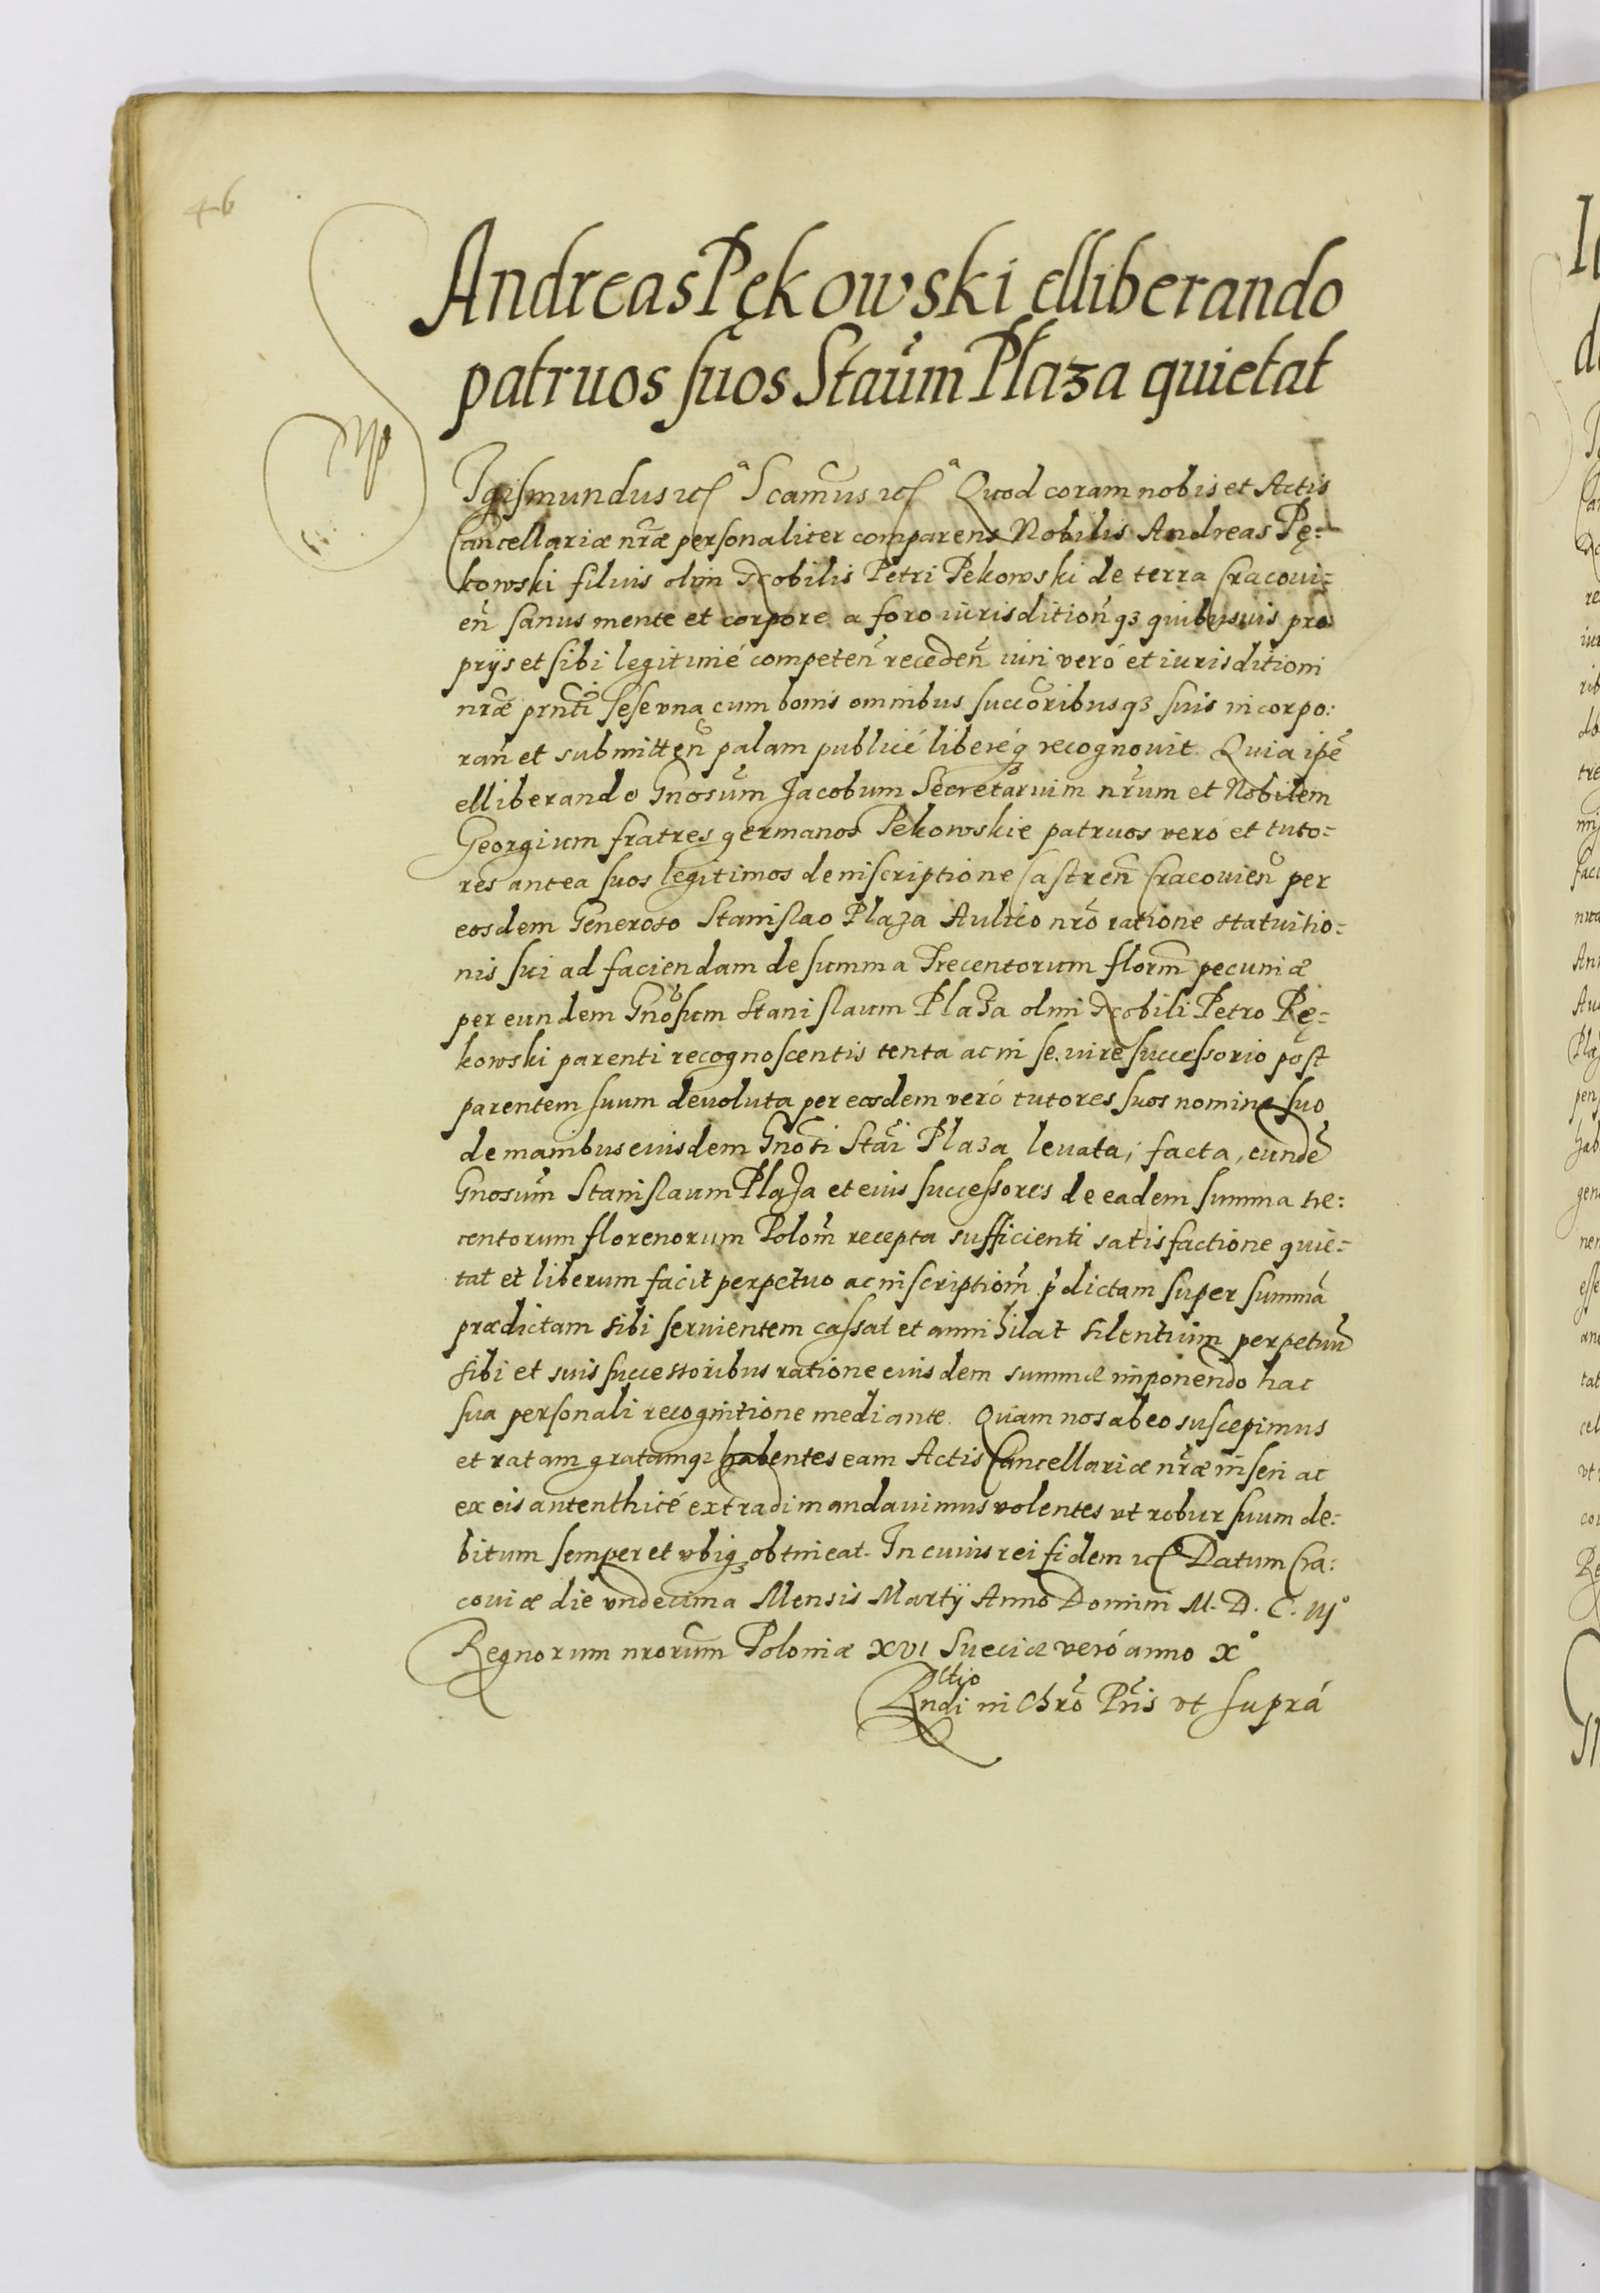 46
Andreas Pękowski elliberando
patruos suos Staũm Plaza quietat
Igismundus etc̃ª Scamũs etc̃ª Quod coram nobis et Actis
Cancellariæ nr̃æ personaliter comparens Nobilis Andreas Pę=
kowski filius olim Nobilis Petri Pekowski de terra Cracoui=
eñ sanus mente et corpore a foro iurisditioñq3 quibusuis pro
prijs et sibi legitimé competeñ recedeñ iuri veró et iurisditioni
nr̃æ prñti sese vna cum bonis omnibus succõribusq3 suis incorpo:
rañ et submitteñ palam publicé liberéq3 recognouit. Quia ipẽ
elliberando Gnosũm Jacobum Secretãrium nr̃um et Nobilem
Georgium fratres germanos Pekowskie patruos veró et tuto=
res antea suos legitimos de inscriptione Castreñ Cracouieñ per
eosdem Generoso Stanislao Plaza Aulico nr̃o ratione statuitio=
nis sui ad faciendam de summa Trecentorum florm̃ pecuniæ
per eundem Gnõsum Stanislaum Plaza olim Nobili Petro Pę=
kowski parenti recognoscentis tenta ac in se iure successorio post
parentem suum deuoluta per eosdem veró tutores suos nomine suo
de manibus eiusdem Gnosi Stãi Plaza leuata, facta, eundẽ
Gnosũm Stanislaum Plaza et eius successores de eadem summa tre:
centorum florenorum Polom̃ recepta sufficienti satisfactione quie=
tat et liberum facit perpetuo ac inscriptiom̃ p̃dictam super summã
prædictam sibi seruientem cassat et annihilat silentium perpetuũ
sibi et suis successoribus ratione eiusdem summæ imponendo hac
sua personali recognitione mediante. Quam nos ab eo suscepimus
et ratam gratamq3 habentes eam Actis Cancellariæ nr̃æ inseri ac
ex eis autenthicé extradi mandauimus volentes vt robur suum de:
bitum semper et vbiq3 obtineat. In cuius rei fidem etc̃ Datum Cra:
couiæ die vndecima Mensis Martij Anno Domini M. D. C. iij°
Regnorum nrorũm Poloniæ XVI Sueciæ veró anno X°
Rltio
Rndi in Chr̃o Pr̃is vt suprá